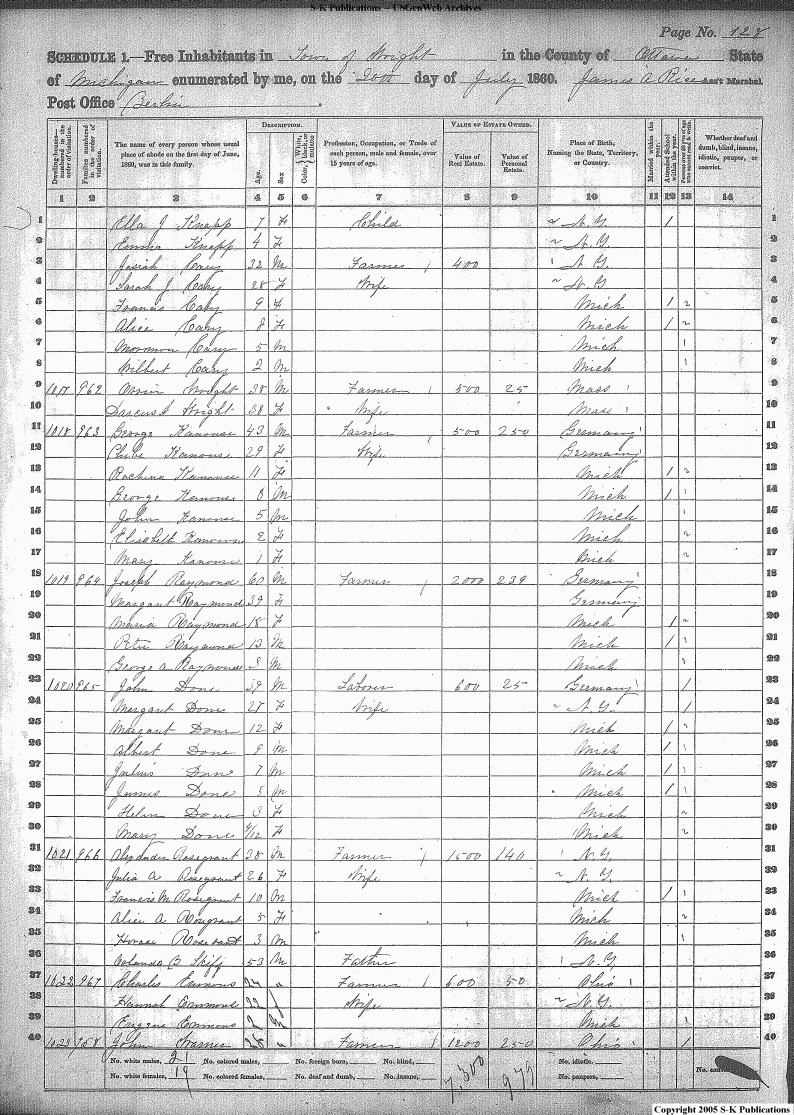 S-K Publications -- USGenWeb Archives
Page No. 128
SCHEDULE 1.—Free Inhabitants in Town of Wright in the County of Ottawa State
of Michigan enumerated by me, on the 20th day of July 1860. James A Rice Ass't Marshal.
Post Office Berlin
Dwelling-houses—numbered in the order of visitation.
Families numbered in the order of visitation.
The name of every person whose usual place of abode on the first day of June, 1860, was in this family.
DESCRIPTION.
Age.
Sex
Color, { White, black, or mulatto
Profession, Occupation, or Trade of each person, male and female, over 15 years of age.
VALUE OF ESTATE OWNED.
Value of Real Estate.
Value of Personal Estate.
Place of Birth, Naming the State, Territory, or Country.
Married within the year.
Attended School within the year.
Persons over 20 years of age who cannot read & write.
Whether deaf and dumb, blind, insane, idiotic, pauper, or convict.
1 2 3 4 5 6 7 8 9 10 11 12 13 14
1 Ella J Knapp 7 F Child N.Y. / 1
2 Emma Knapp 4 F N.Y. 2
3 Josiah Cary 32 M Farmer 400 N.Y. 3
4 Sarah J Cary 28 F Wife N.Y 4
5 Francis Cary 9 Mich 1 2 5
6 Alice Cary 8 F Mich 1 2 6
7 Cary 5 M Mich 1 7
8 Wilbert Cary 2 M Mich 1 8
9 1017 962 Orrin Wright 38 M Farmer 500 25 Mass 9
10 Wright 38 F " Wife Mass 10
11 1018 963 George Kanouse 43 M Farmer 500 250 Germany 11
12 Chibe Kanouse 29 F Wife Germany 12
13 Kanouse 11 F Mich 1 2 13
14 George Kanouse 8 M Mich 1 1 14
15 John Kanouse 5 M Mich 1 15
16 Elisabeth Kanouse 2 F Mich 2 16
17 Mary Kanouse 1 F Mich 2 17
18 1019 964 Joseph Raymond 60 M Farmer 2000 239 Germany 18
19 Margant Raymond 39 F Germany 19
20 Maria Raymond 18 F Mich 1 2 20
21 Peter Raymond 13 M Mich 1 1 21
22 George A Raymond 3 M Mich 1 22
23 1020 965 John Done 39 M Laborer 600 25 Germany / 23
24 Margant Done 28 F Wife N.Y. / 24
25 Margant Done 12 F Mich 1 2 25
26 Albert Done 9 M Mich 1 1 26
27 Julius Done 7 M Mich 1 1 27
28 James Done 5 M Mich 1 1 28
29 Helen Done 3 F Mich 2 29
30 Mary Done /12 F Mich 2 30
31 1021 966 Alexander Rosegrant 38 M Farmer 1500 140 N.Y. 31
32 Julia A Rosegrant 26 F Wife N.Y. 32
33 Francis M Rosegrant 10 M Mich 1 1 33
34 Alice A Rosegrant 5 F Mich 2 34
35 Horace Rosegrant 3 M Mich 1 35
36 B Skiff 53 M Father N.Y 36
37 1022 967 Charles Emmons 24 " Farmer 600 50 Ohio 37
38 Hannah Emmons 22 f Wife N.Y. 38
39 Eugene Emmons 2 M Mich 1 39
40 1023 968 John Warner 28 " Farmer 1200 250 Ohio / 40
No. white males, 21 No. colored males, No. foreign born, No. blind, 7,300 979 No. idiotic,
No. white females, 19 No. colored females, No. deaf and dumb, No. insane, No. paupers,
Copyright 2005 S-K Publications